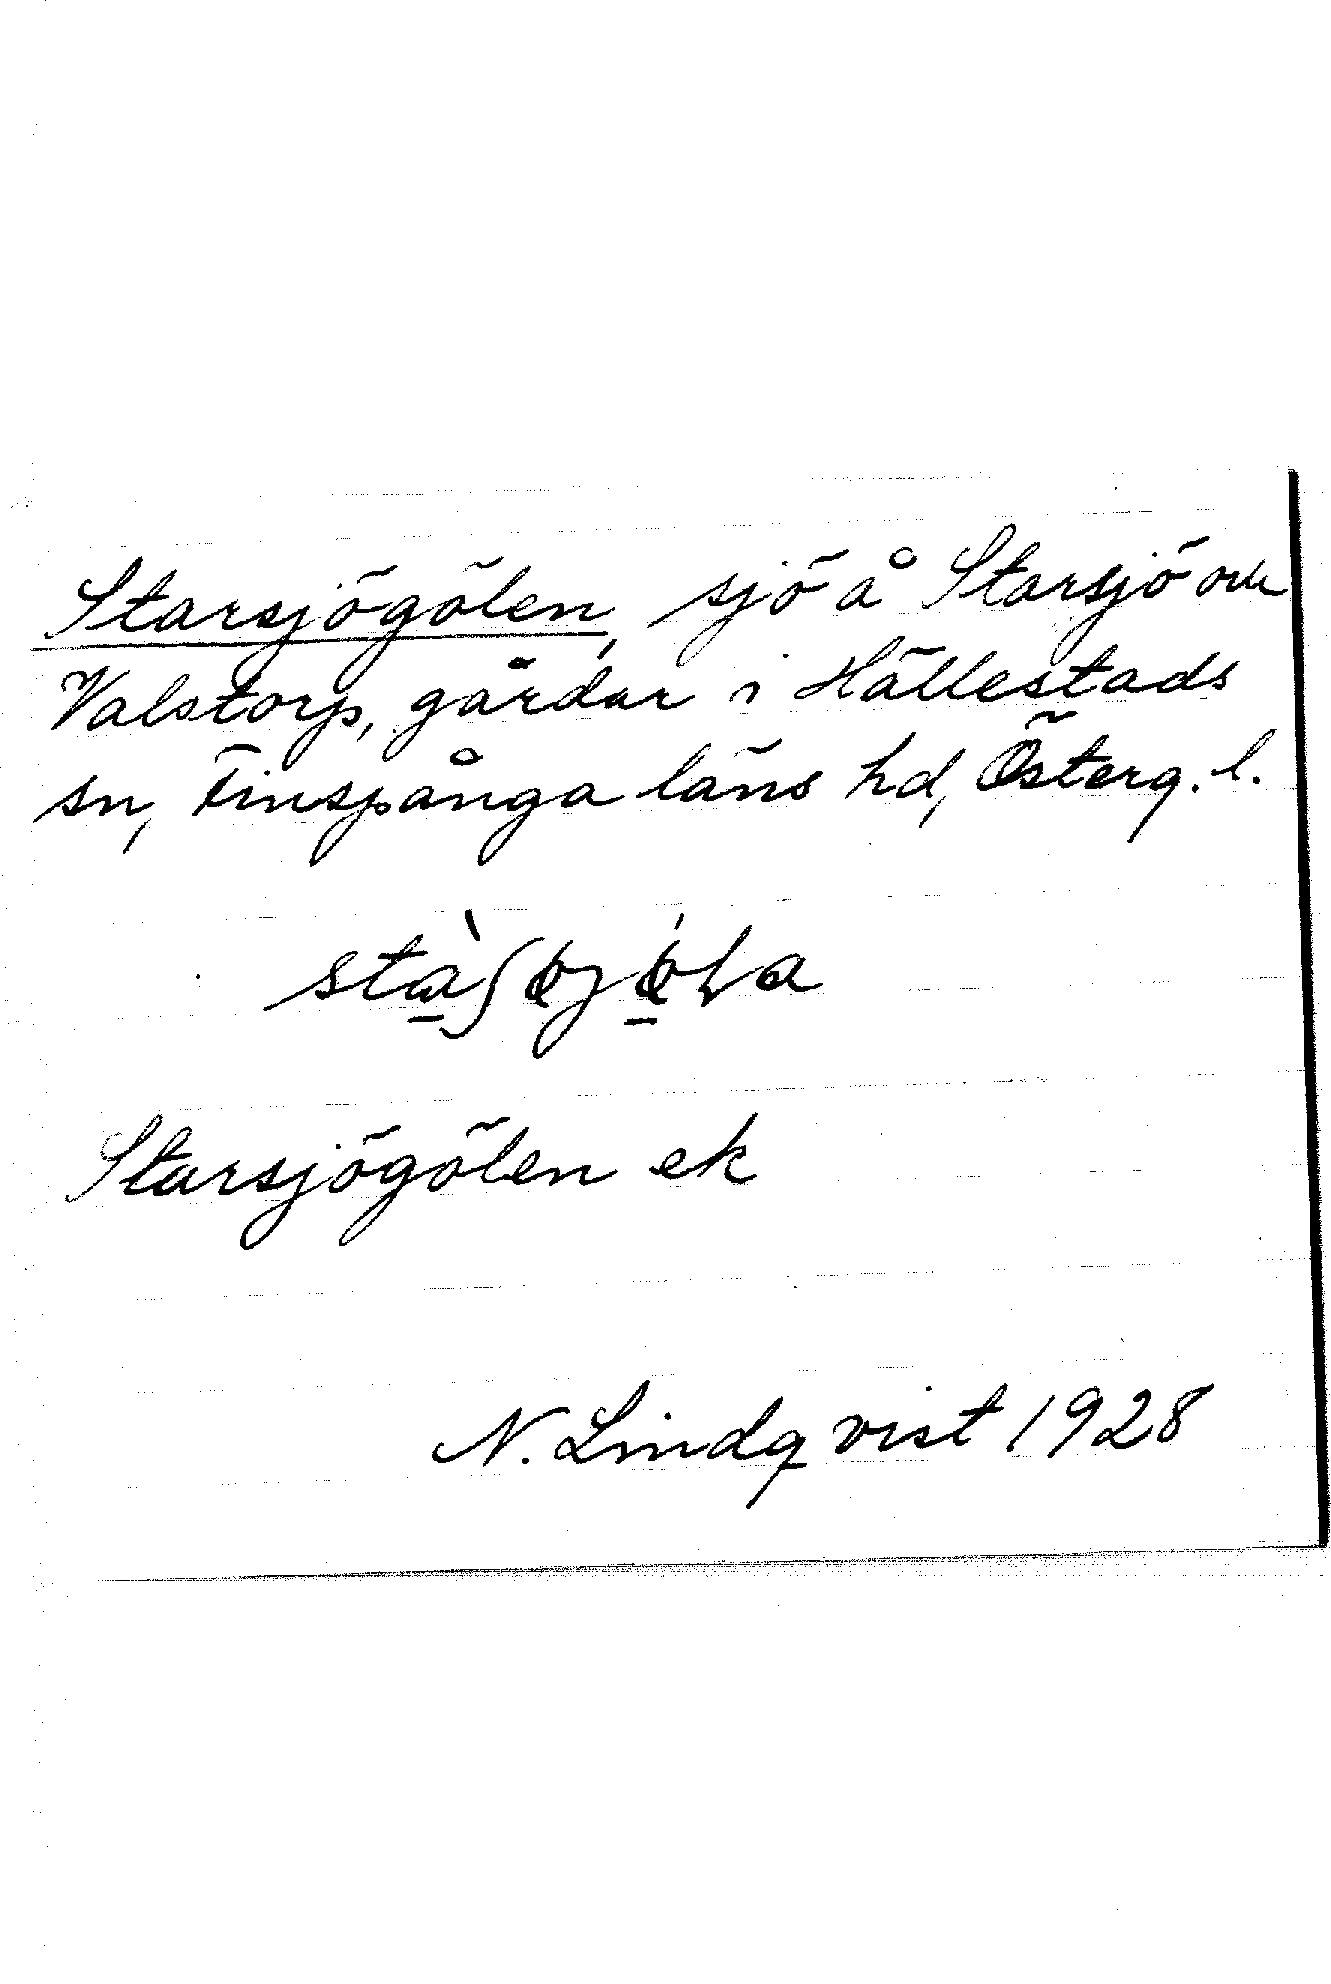 Starsjögölen, sjö å Starsjö och
Valstorp, gårdar i Hällestads
sn, Finspånga läns hd, Österg. l.
Starsjögölen ek
N. Lindqvist 1928